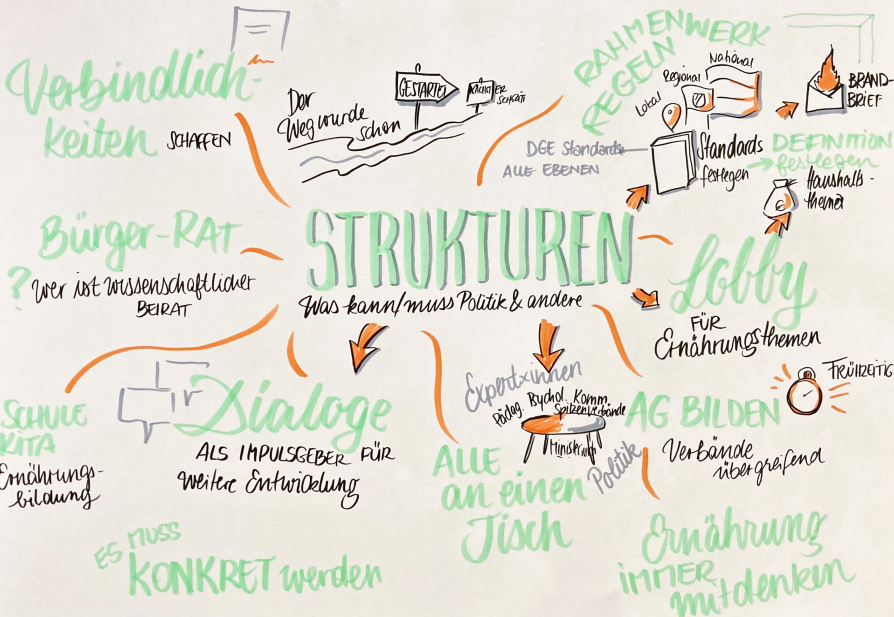 Verbindlich-
keiten SCHAFFEN
Der
Weg wurde
schon
GESTARTET
NÄCHSTER
SCHRITT
RAHMENWERK
REGELN
Lokal
Regional
National
DGE Standards
ALLE EBENEN
Standards
festlegen
BRAND-
BRIEF
DEFINITION
festlegen
Haushalts-
themen
Bürger-RAT
? Wer ist wissenschaftlicher
BEIRAT
STRUKTUREN
Was kann/muss Politik & andere
Lobby
FÜR
Ernährungsthemen
SCHULE
KITA
Ernährungs-
bildung
Dialoge
ALS IMPULSGEBER FÜR
weitere Entwicklung
Expert×innen
Pädag. Psychol. Komm.
Spitzenverbände
Ministerium
Politik
ALLE
an einen
Tisch
AG BILDEN
FRÜHZEITIG
Verbände
übergreifend
ES MUSS
KONKRET werden
Ernährung
IMMER
mitdenken